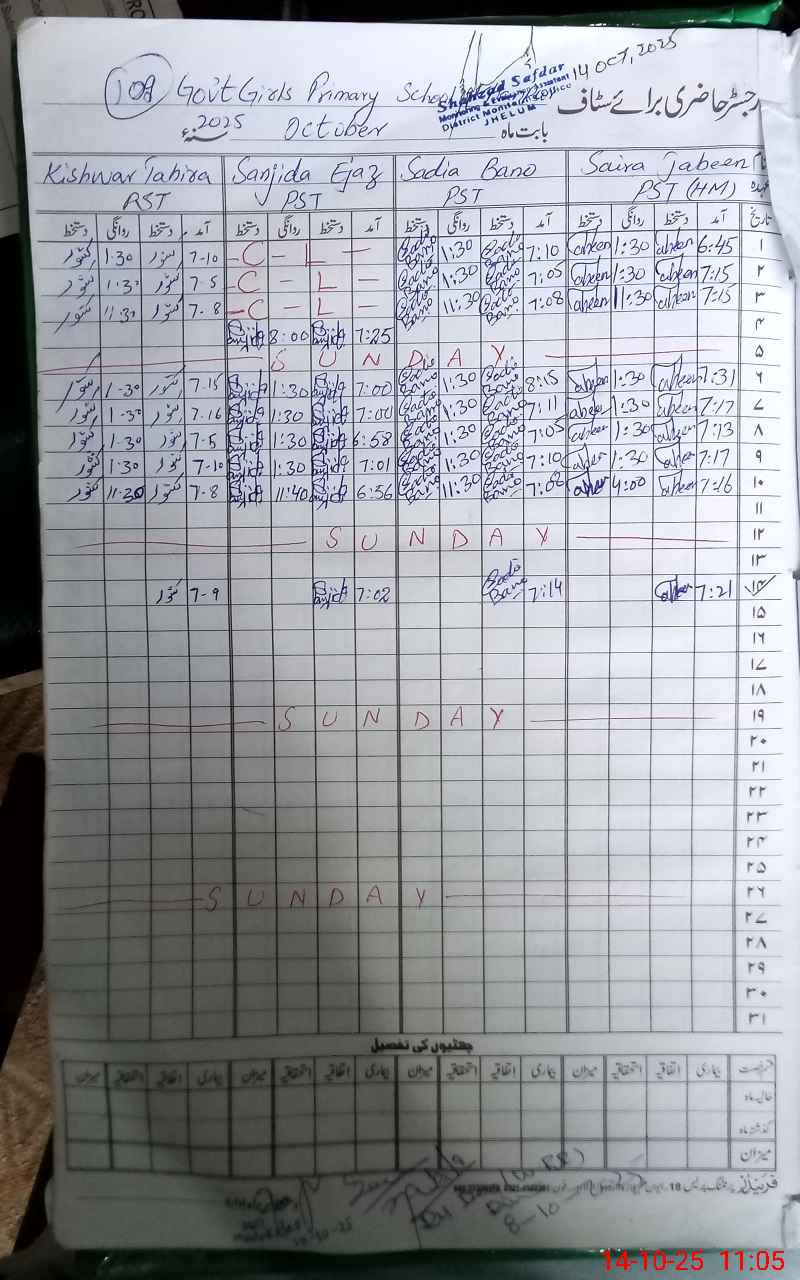 109 Gov't Girls Primary School
14 OCT, 2025
Shahzad Safdar
Monitoring & Evaluation Assistant
District Monitoring Office
JHELUM
رجسٹر حاضری برائے سٹاف
بابت ماہ October 2025
Kishwar Tahira Sanjida Ejaz Sadia Bano Saira Jabeen نام
PST PST PST (HM) عہدہ
دستخط روانگی دستخط آمد دستخط روانگی دستخط آمد دستخط روانگی دستخط آمد دستخط روانگی دستخط آمد تاریخ
کشور 1-30 کشور 7-10 - C - L - Sadia Bano 1:30 Sadia Bano 7:10 Jabeen 1:30 Jabeen 6:45 ۱
کشور 1-30 کشور 7-5 - C - L - Sadia Bano 1:30 Sadia Bano 7:05 Jabeen 1:30 Jabeen 7:15 ۲
کشور 11-30 کشور 7-8 - C - L - Sadia Bano 11:30 Sadia Bano 7:08 Jabeen 11:30 Jabeen 7:15 ۳
Sanjida 8:00 Sanjida 7:25 ۴
S U N D A Y ۵
کشور 1-30 کشور 7-15 Sanjida 1:30 Sanjida 7:00 Sadia Bano 1:30 Sadia Bano 8:15 Jabeen 1:30 Jabeen 7:31 ۶
کشور 1-30 کشور 7-16 Sanjida 1:30 Sanjida 7:00 Sadia Bano 1:30 Sadia Bano 7:11 Jabeen 1:30 Jabeen 7:17 ۷
کشور 1-30 کشور 7-5 Sanjida 1:30 Sanjida 6:58 Sadia Bano 1:30 Sadia Bano 7:05 Jabeen 1:30 Jabeen 7:13 ۸
کشور 1-30 کشور 7-10 Sanjida 1:30 Sanjida 7:01 Sadia Bano 1:30 Sadia Bano 7:10 Jabeen 1:30 Jabeen 7:17 ۹
کشور 11-30 کشور 7-8 Sanjida 11:40 Sanjida 6:56 Sadia Bano 11:30 Sadia Bano 7:08 Jabeen 4:00 Jabeen 7:16 ۱۰
۱۱
S U N D A Y ۱۲
۱۳
کشور 7-9 Sanjida 7:02 Sadia Bano 7:14 Jabeen 7:21 ۱۴
۱۵
۱۶
۱۷
۱۸
S U N D A Y ۱۹
۲۰
۲۱
۲۲
۲۳
۲۴
۲۵
S U N D A Y ۲۶
۲۷
۲۸
۲۹
۳۰
۳۱
چھٹیوں کی تفصیل
میزان استحقاقیہ اتفاقیہ بیماری میزان استحقاقیہ اتفاقیہ بیماری میزان استحقاقیہ اتفاقیہ بیماری میزان استحقاقیہ اتفاقیہ بیماری رخصت
حالیہ ماہ
گذشتہ ماہ
میزان
8-10
14-10-25 11:05